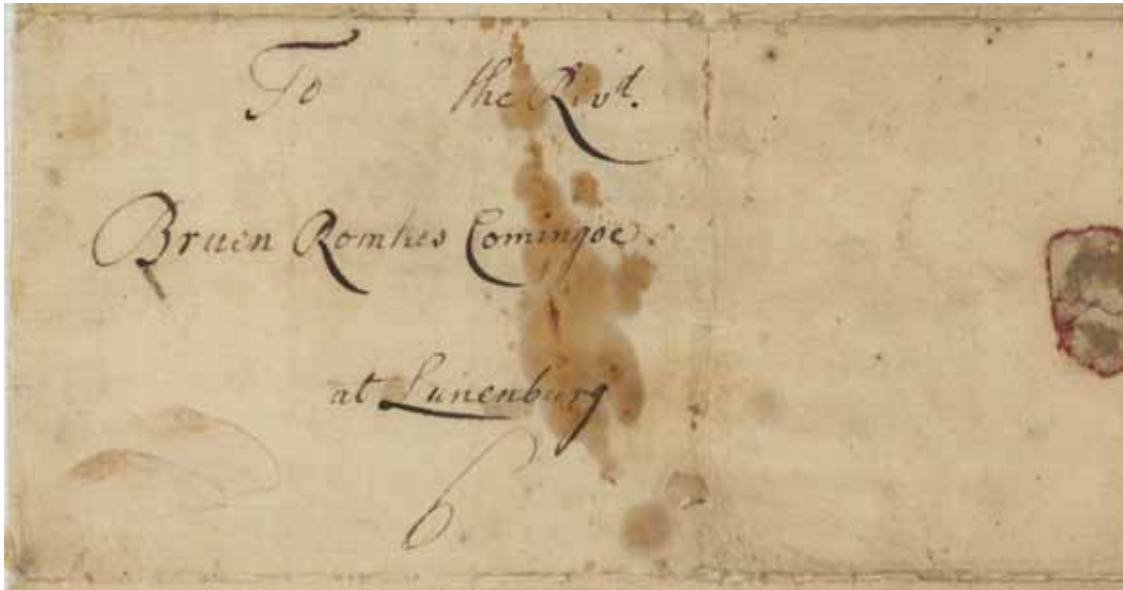 To the Revd.
Bruen Romkes Comingoe
at Lunenburg
6